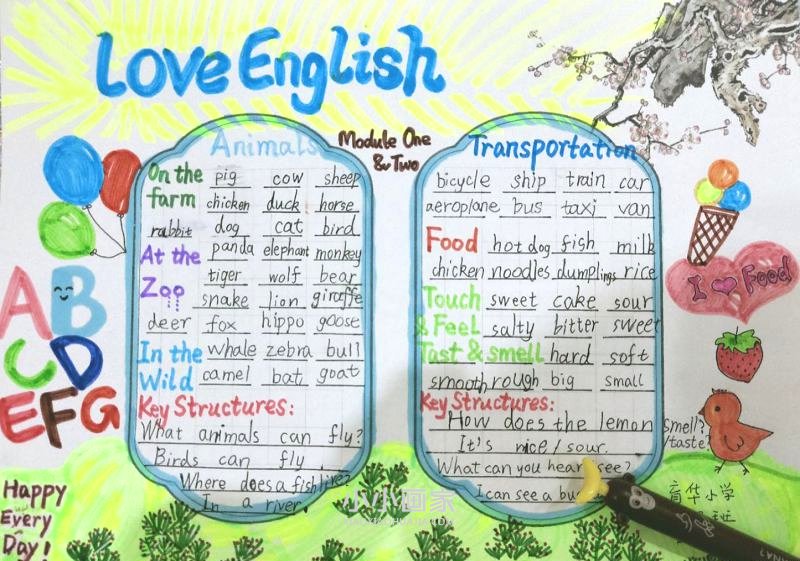 Love English
Module One
& Two
Animals
On the farm pig cow sheep
chicken duck horse
rabbit dog cat bird
At the Zoo panda elephant monkey
tiger wolf bear
snake lion giraffe
deer fox hippo goose
In the Wild whale zebra bull
camel bat goat
Key Structures:
What animals can fly?
Birds can fly
Where does a fish live?
In a river.
Transportation
bicycle ship train car
aeroplane bus taxi van
Food hot dog fish milk
chicken noodles dumplings rice
Touch & Feel sweet cake sour
salty bitter sweet
Tast & smell hard soft
smooth rough big small
Key Structures:
How does the lemon smell?
/taste?
It's nice / sour.
What can you hear / see?
I can see a
ABCDEFG
I Food
Happy
Every
Day!
育华小学
班
小小画家